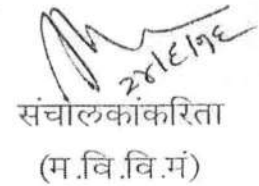 २४/६/१६
संचालकांकरिता
(म.वि.वि.मं)